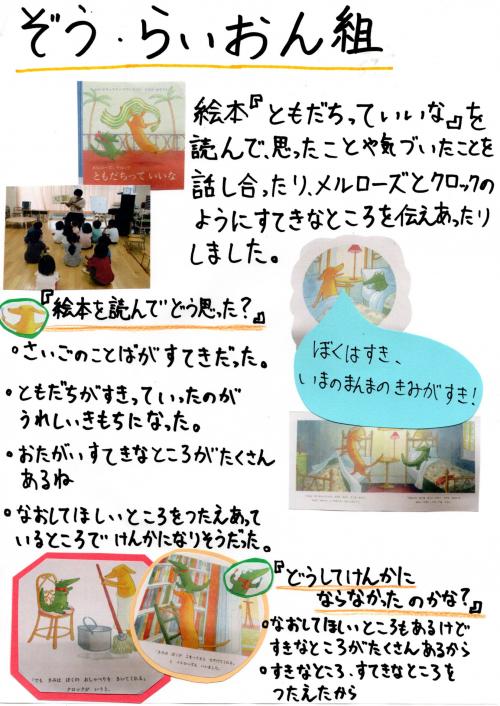 ぞう・らいおん組
絵本『ともだちっていいな』を
読んで、思ったことや気づいたことを
話し合ったり、メルローズとクロックの
ようにすてきなところを伝えあったり
しました。
メルローズとクロック
ともだちって いいな
『絵本を読んでどう思った?』
・さいごのことばがすてきだった。
・ともだちがすきっていったのが
うれしいきもちになった。
・おたがいすてきなところがたくさん
あるね
・なおしてほしいところをつたえあって
いるところでけんかになりそうだった。
ぼくはすき、
いまのまんまのきみがすき!
「でも きみは ぼくの おしゃべりを きいてくれる」
クロックが いうと、
『どうしてけんかに
ならなかったのかな?』
・なおしてほしいところもあるけど
すきなところがたくさんあるから
・すきなところ、すてきなところを
つたえたから